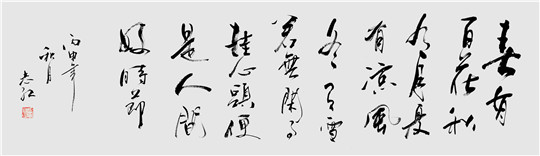 春有
百花秋
有月夏
有凉風
冬有雪
若無閑事
挂心頭便
是人間
好時節
丙申年
秋月